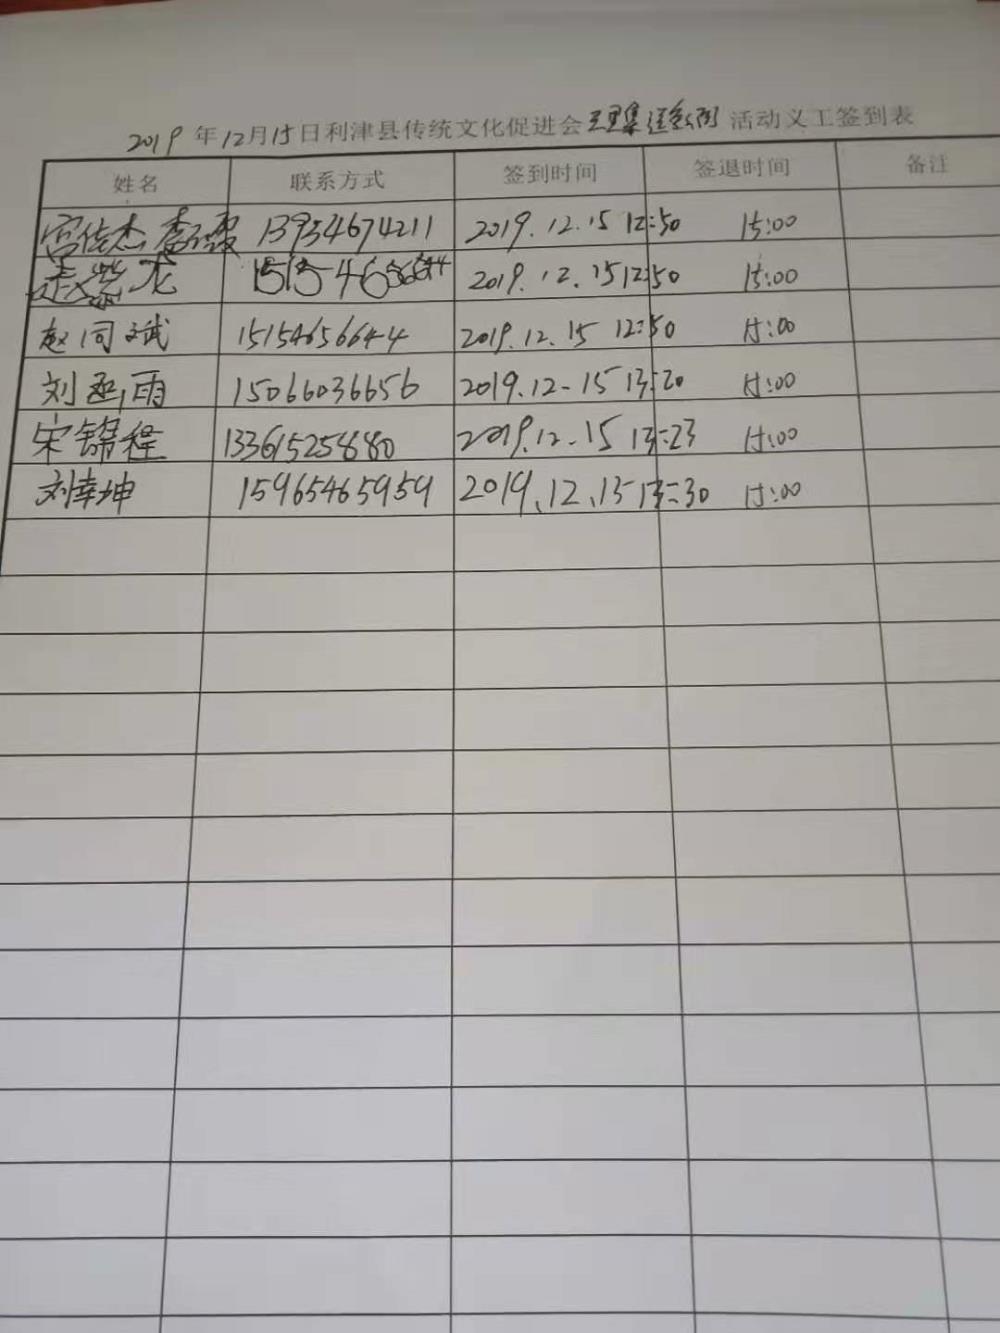 2019年12月15日利津县传统文化促进会王里集活动义工签到表
姓名 联系方式 签到时间 签退时间 备注
宫佳杰 13954674211 2019.12.15 12:50 15:00
紫龙 15154656644 2019.12.15 12:50 15:00
赵同斌 15154656644 2019.12.15 12:50 15:00
刘丞雨 15066036656 2019.12-15 13:20 15:00
宋锦程 13361525880 2019.12.15 13:23 15:00
刘幸坤 15965465959 2019.12.15 13:30 15:00